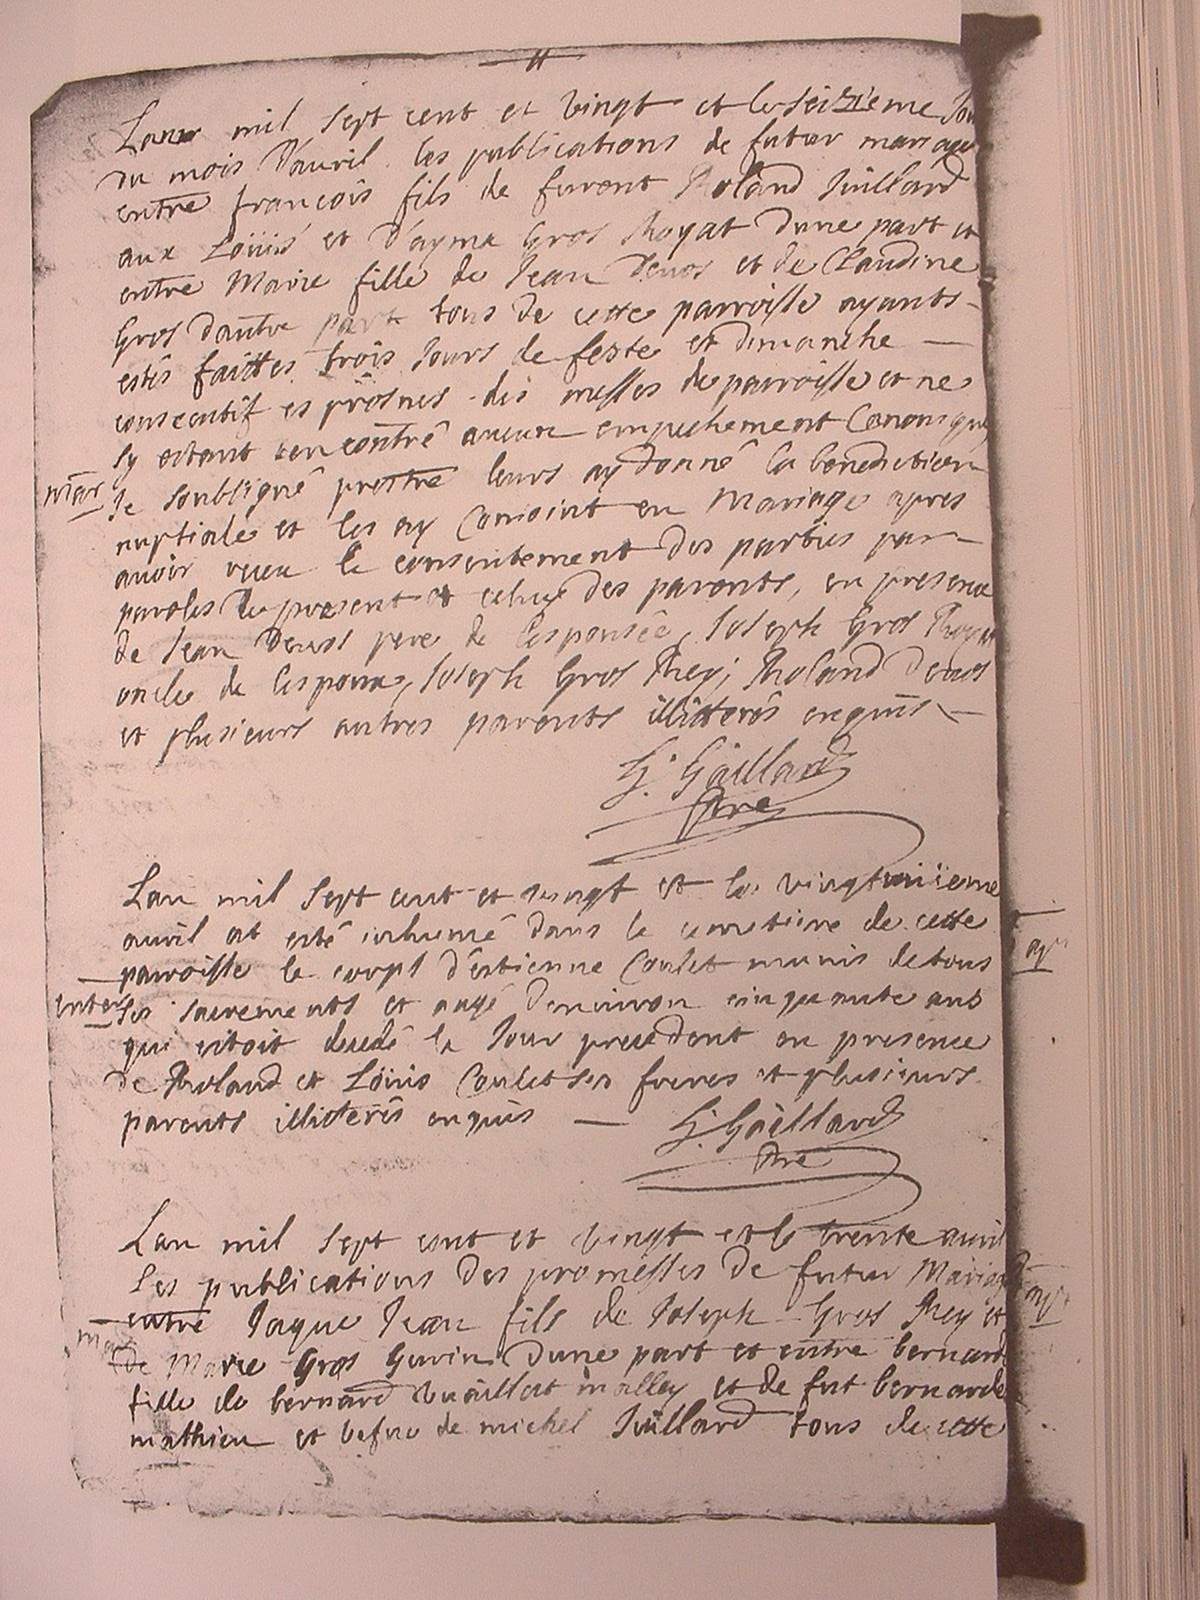 Lan mil sept cent et vingt et le seizieme Jour
du mois d'auril les publications de futur mariage
entre françois fils de furent Roland Juillard
aux Löuis et d'ayma Gros Royat dune part et
entre Marie fille de Jean Deuos et de Claudine
Gros dautre part tous de cette parroisse ayants
estés faittes trois Jours de feste et dimanche —
consecutif es prosnes des messes de parroisse et ne
sy estant rencontré aucun empechement Canonique
mar
Je soubsigné prestre leurs ay donné la benediction
nuptiale et les ay Conioint en Mariage apres
auoir receu le consentement des parties par
paroles de present et celuy des parents, en presence
de Jean Deuos pere de lesponsée, Joseph Gros Royat
oncle de lespoux, Joseph Gros Rey, Roland Deuos
et plusieurs autres parents illitterés enquis —
G. Gaillard
Pre
Lan mil sept cent et vingt et le vingt
auril at esté inhumé dans le cemetiere de cette
parroisse le corps d'estienne Coulet munis de tous
enter
ses sacrements et aagé denuiron cinquante ans
qui estoit decedé le Jour precedent en presence
de Roland et Löuis Coulet ses freres et plusieurs
parents illitterés enquis —
G. Gaillard
Pre
Lan mil sept cent et vingt et le trente auril
les publications des promesses de futur Mariage
entre Jaque Jean fils de Joseph Gros Rey et
mar
de Marie Gros Gurin dune part et entre bernarde
fille de bernard malley et de fut bernarde
mathieu et vefue de michel Juillard tous de cette